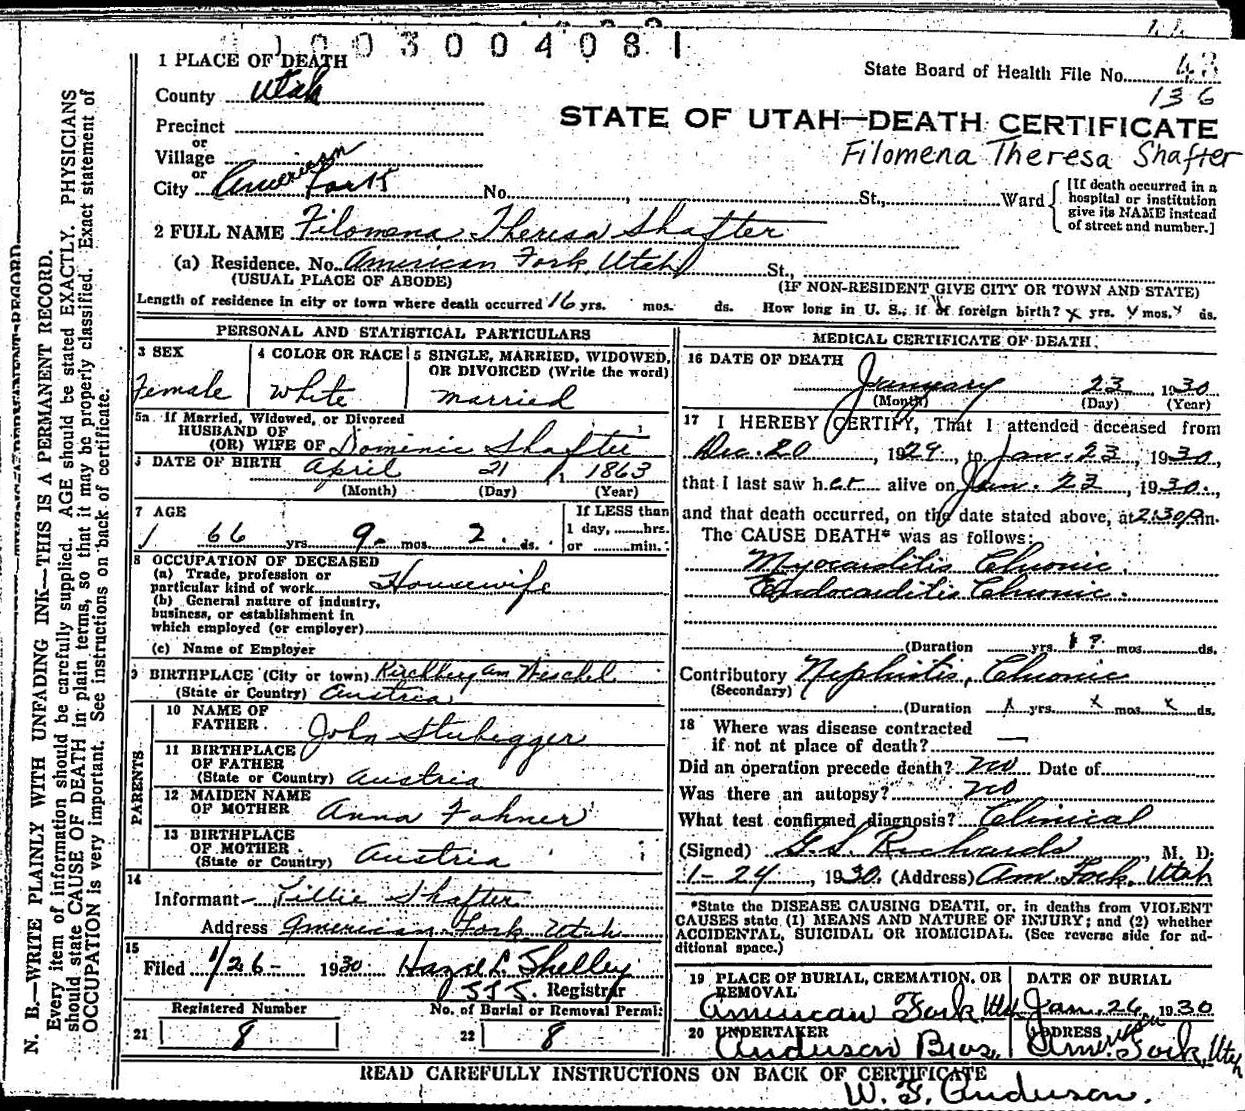 1003004081
1 PLACE OF DEATH
State Board of Health File No. 43
136
County Utah
STATE OF UTAH—DEATH CERTIFICATE
Filomena Theresa Shafter
Precinct
or
Village
or
City American Fork No. , St., Ward
[If death occurred in a
hospital or institution
give its NAME instead
of street and number.]
2 FULL NAME Filomena Theresa Shafter
(a) Residence. No. American Fork Utah St.,
(USUAL PLACE OF ABODE) (IF NON-RESIDENT GIVE CITY OR TOWN AND STATE)
Length of residence in city or town where death occurred 16 yrs. mos. ds. How long in U. S., if of foreign birth? x yrs. mos. ds.
PERSONAL AND STATISTICAL PARTICULARS
3 SEX
Female
4 COLOR OR RACE
White
5 SINGLE, MARRIED, WIDOWED,
OR DIVORCED (Write the word)
married
5a If Married, Widowed, or Divorced
HUSBAND OF
(OR) WIFE OF Dominic Shafter
DATE OF BIRTH April 21, 1863
(Month) (Day) (Year)
7 AGE
66 yrs. 9 mos. 2 ds.
If LESS than
1 day, hrs.
or min.
8 OCCUPATION OF DECEASED
(a) Trade, profession or
particular kind of work Housewife
(b) General nature of industry,
business, or establishment in
which employed (or employer)
(c) Name of Employer
9 BIRTHPLACE (City or town) Kirchberg am Weschel
(State or Country) Austria
PARENTS
10 NAME OF
FATHER John Stubegger
11 BIRTHPLACE
OF FATHER
(State or Country) Austria
12 MAIDEN NAME
OF MOTHER Anna Fahner
13 BIRTHPLACE
OF MOTHER
(State or Country) Austria
14
Informant Tillie Shafter
Address American Fork Utah
15
Filed 1/26- 1930 Hazel L Shelley
Registrar
Registered Number
21 8
No. of Burial or Removal Permit
22 8
MEDICAL CERTIFICATE OF DEATH
16 DATE OF DEATH
January 23 1930
(Month) (Day) (Year)
17 I HEREBY CERTIFY, That I attended deceased from
Dec. 20, 1929, to Jan. 23, 1930,
that I last saw her alive on Jan. 23, 1930,
and that death occurred, on the date stated above, at 2:30 P.m.
The CAUSE DEATH* was as follows:
Myocarditis Chronic.
Endocarditis Chronic.
(Duration yrs. ? mos. ds.
Contributory Nephritis, Chronic
(Secondary)
(Duration x yrs. x mos. x ds.
18 Where was disease contracted
if not at place of death? —
Did an operation precede death? no Date of
Was there an autopsy? no
What test confirmed diagnosis? Clinical
(Signed) G. S. Richards, M. D.
1-24, 1930. (Address) Am. Fork, Utah
*State the DISEASE CAUSING DEATH, or, in deaths from VIOLENT
CAUSES state (1) MEANS AND NATURE OF INJURY; and (2) whether
ACCIDENTAL, SUICIDAL OR HOMICIDAL. (See reverse side for ad-
ditional space.)
19 PLACE OF BURIAL, CREMATION, OR
REMOVAL
American Fork, Utah
DATE OF BURIAL
Jan. 26, 1930
20 UNDERTAKER
Anderson Bros.
ADDRESS
American Fork, Utah
READ CAREFULLY INSTRUCTIONS ON BACK OF CERTIFICATE
W. F. Anderson.
N. B.—WRITE PLAINLY WITH UNFADING INK—THIS IS A PERMANENT RECORD.
Every item of information should be carefully supplied. AGE should be stated EXACTLY. PHYSICIANS
should state CAUSE OF DEATH in plain terms, so that it may be properly classified. Exact statement of
OCCUPATION is very important. See instructions on back of certificate.